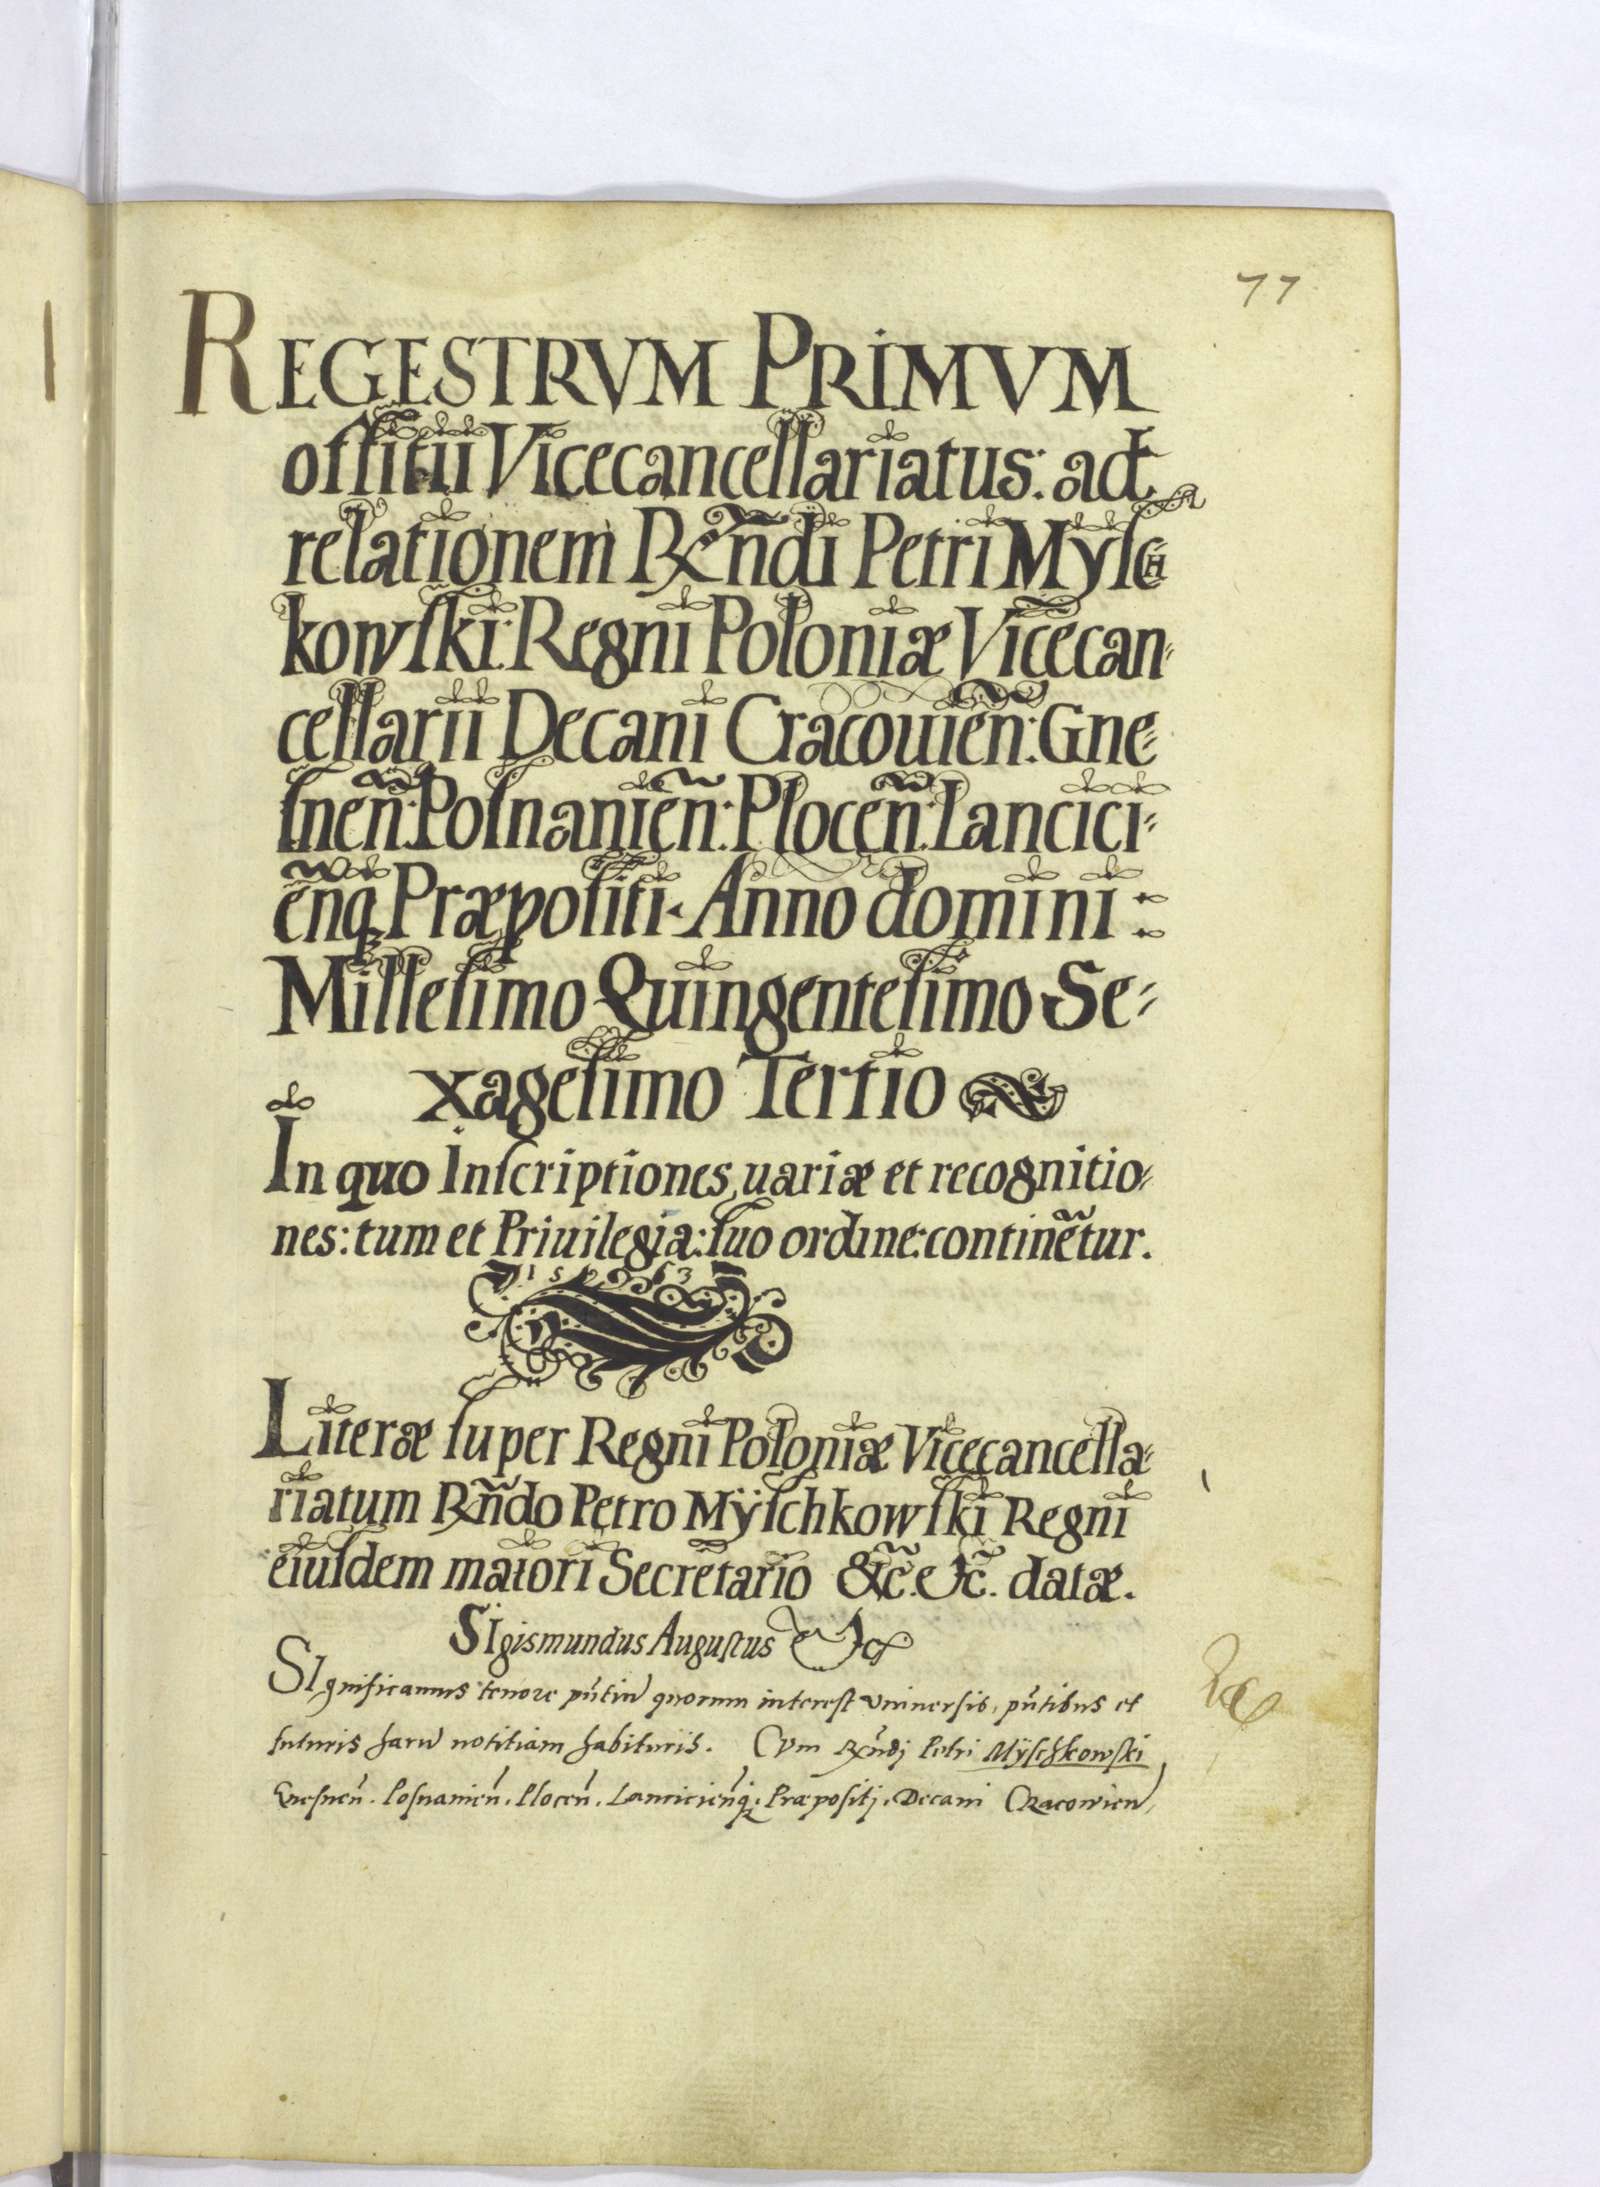 77
REGESTRVM PRIMVM
offitii Vicecancellariatus: ad
relationem Rñdi Petri Mÿsch
kowski: Regni Poloniæ Vicecan-
cellarii Decani Cracouien̄: Gne-
snen̄: Posnanien̄: Plocen̄: Lancici-
en̄q₃ Præpositi. Anno domini:
Millesimo Quingentesimo Se-
xagesimo Tertio
In quo Inscriptiones uariæ et recognitio-
nes: tum et Priuilegia: suo ordine: continẽtur.
1563
Literæ super Regni Poloniæ Vicecancella-
riatum Rñdo Petro Mÿschkowski Regni
eiusdem maiori Secretario &c̃. &c̃. datæ.
SIgismundus Augustus &c
SIgnificamus tenore pñtiũ quorum interest vniuersis, pñtibus et
futuris harũ notitiam habituris. Cvm Rñdj Petri Mÿschkowski
Gnesnen̄. Posnanien̄. Plocen̄. Lancicien̄q₃. Præpositj, Decani Cracowien̄,